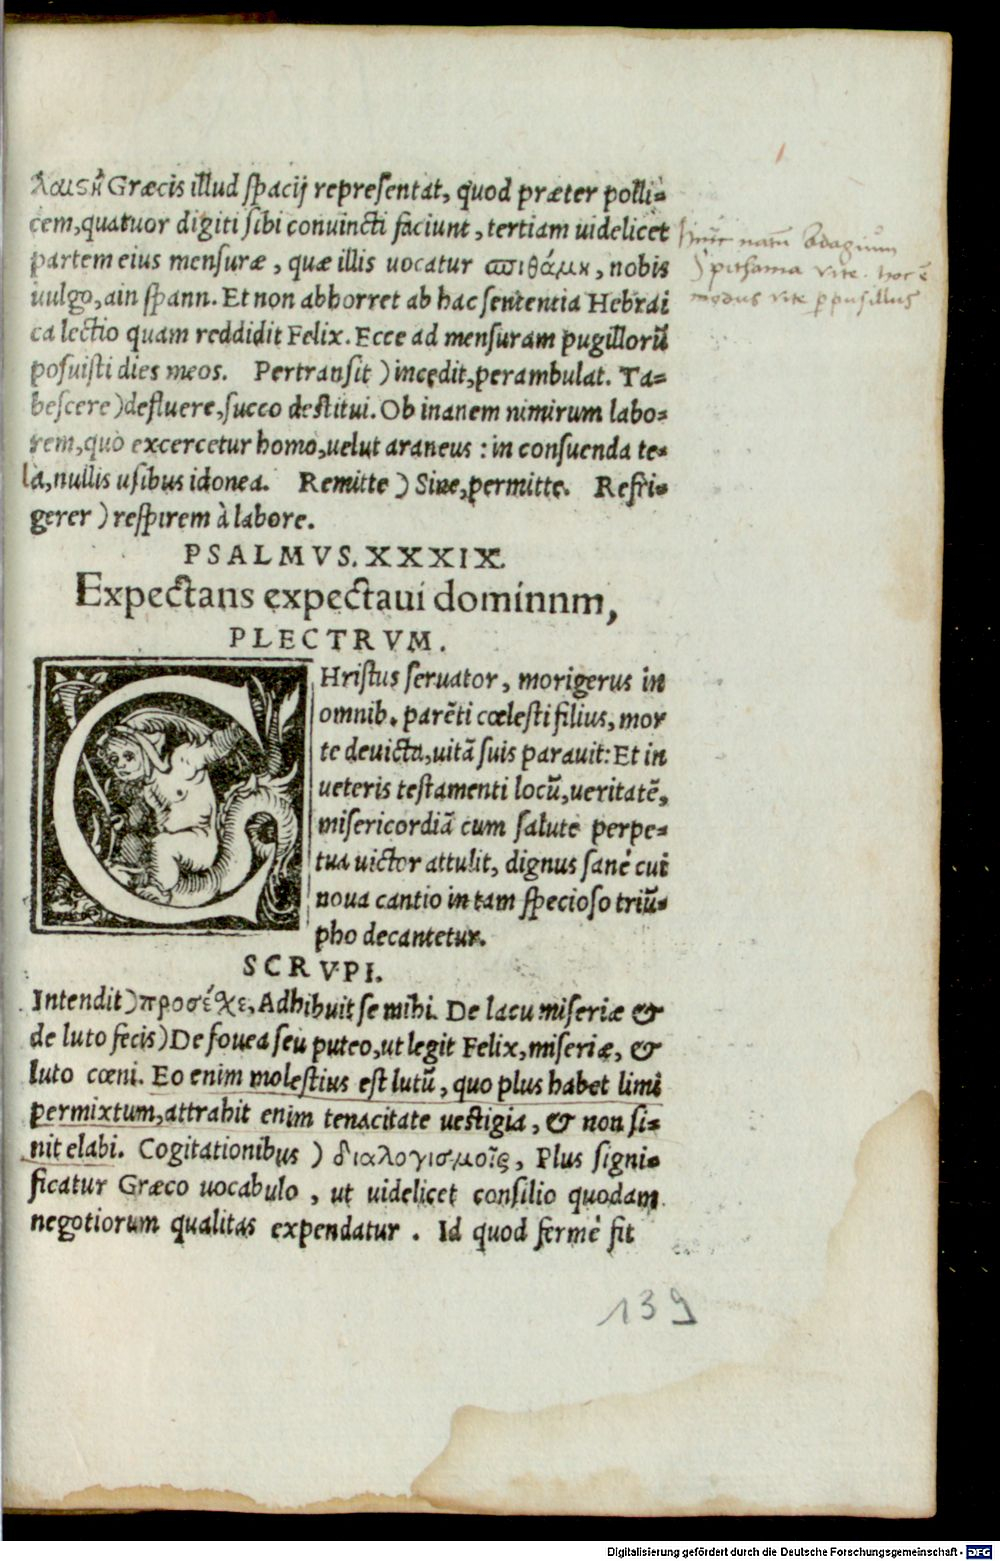 λαιςὴ Græcis illud spacij repreſentat, quod præter polli⸗
cem, quatuor digiti ſibi conuincti faciunt, tertiam uidelicet
partem eius menſuræ, quæ illis uocatur σπιθάμη, nobis
uulgo, ain ſpann. Et non abhorret ab hac ſententia Hebrai
ca lectio quam reddidit Felix. Ecce ad menſuram pugillorū
poſuiſti dies meos. Pertranſit ) incędit, perambulat. Ta⸗
beſcere ) defluere, ſucco deſtitui. Ob inanem nimirum labo⸗
rem, quo excercetur homo, uelut araneus : in conſuenda te⸗
la, nullis uſibus idonea. Remitte ) Sine, permitte. Refri⸗
gerer ) reſpirem à labore.
PSALMVS. XXXIX.
Expectans expectaui dominnm,
PLECTRVM.
CHriſtus ſeruator, morigerus in
omnib. parēti cœleſti filius, mor
te deuicta, uitā ſuis parauit: Et in
ueteris teſtamenti locū, ueritatē,
miſericordiā cum ſalute perpe⸗
tua uictor attulit, dignus ſanè cui
noua cantio in tam ſpecioſo triū⸗
pho decantetur.
SCRVPI.
Intendit ) προσέχε, Adhibuit ſe mihi. De lacu miſeriæ &
de luto fecis ) De fouea ſeu puteo, ut legit Felix, miſeriæ, &
luto cœni. Eo enim moleſtius eſt lutū, quo plus habet limi
permixtum, attrahit enim tenacitate ueſtigia, & non ſi⸗
nit elabi. Cogitationibus ) διαλογισμοῖς, Plus ſigni⸗
ficatur Græco uocabulo, ut uidelicet conſilio quodam
negotiorum qualitas expendatur. Id quod fermè fit
hinc natū Adagium
Spithama vite. hoc ē
modus vite ꝑpusillus
139
Digitalisierung gefördert durch die Deutsche Forschungsgemeinschaft - DFG